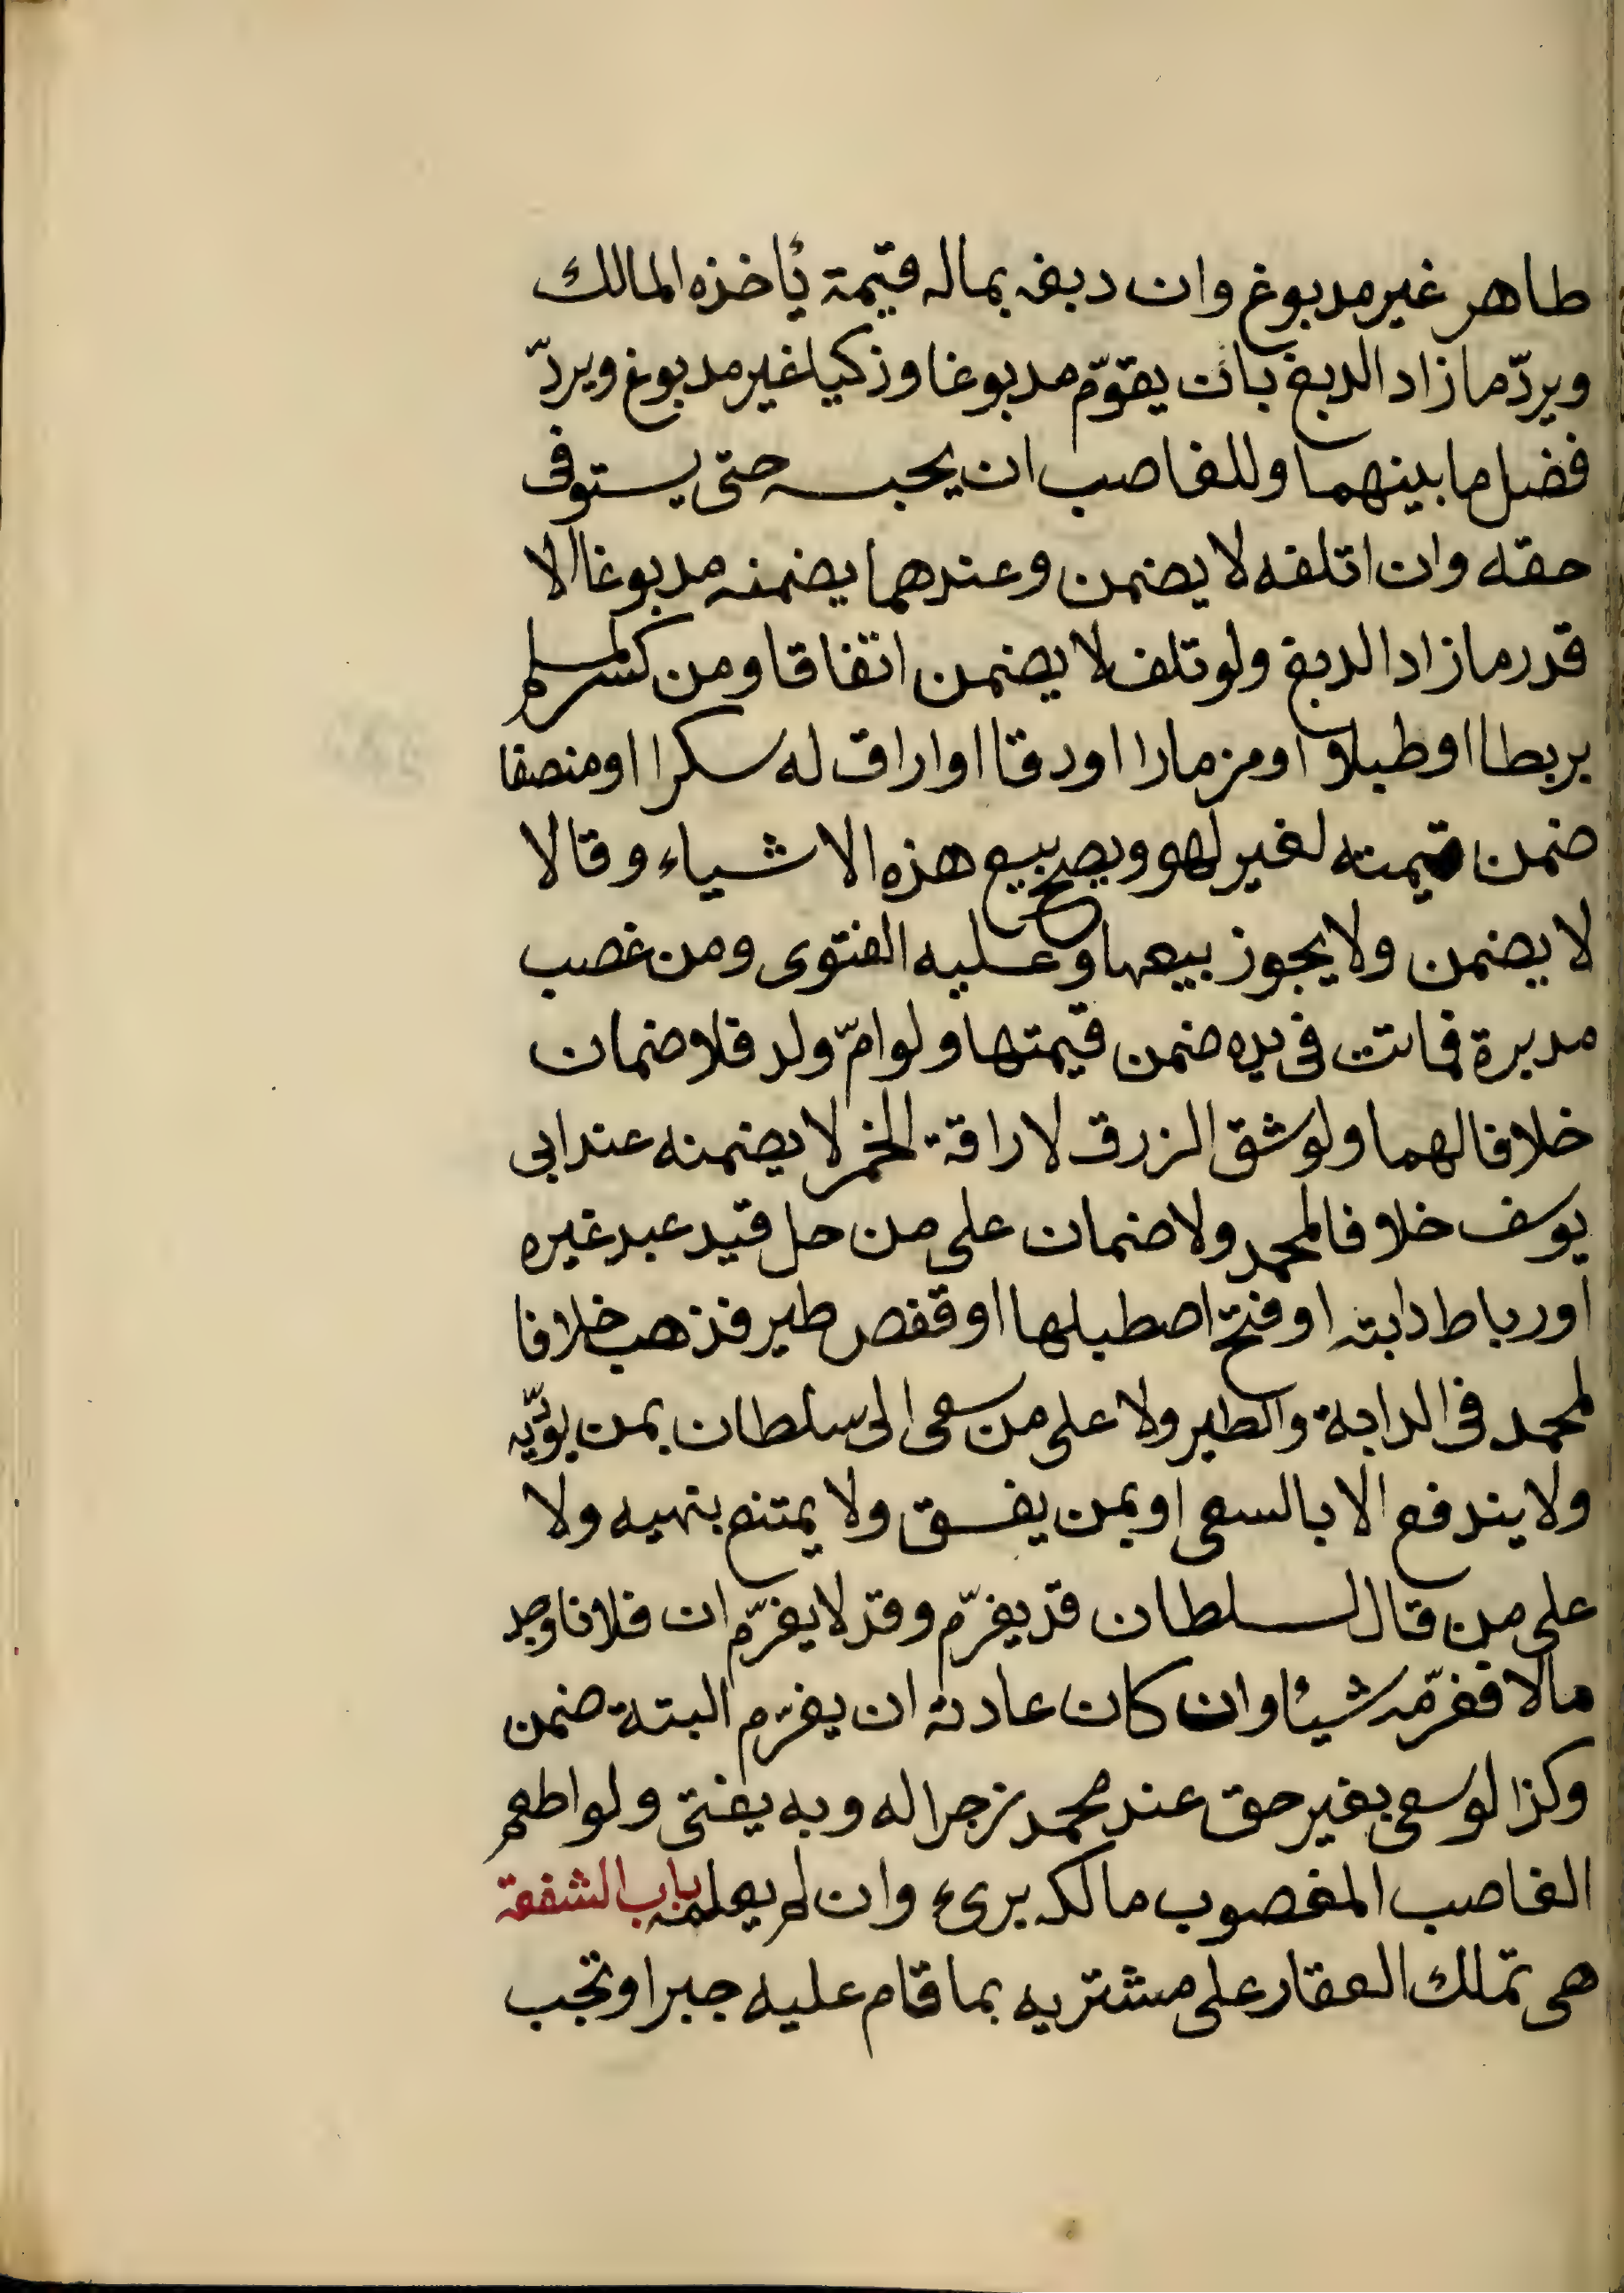 طاهر غير مدبوغ وان دبغه بماله قيمة يأخذه المالك
ويردّ ما زاد الدبغ بان يقوّم مدبوغا وزكيا غير مدبوغ ويردّ
فضل ما بينهما وللغاصب ان يحبسه حتى يستوفى
حقه وان اتلفه لا يضمن وعندهما يضمنه مدبوغا الا
قدر ما زاد الدبغ ولو تلف لا يضمن اتفاقا ومن كسر لمسلم
بربطا او طبلا او مزمارا او دفا او اراق له سكرا او منصفا
ضمن قيمته لغير لهو ويصح بيع هذه الاشياء وقالا
لا يضمن ولا يجوز بيعها وعليه الفتوى ومن غصب
مدبرة فماتت فى يده ضمن قيمتها ولو امّ ولد فلا ضمان
خلافا لهما ولو شق الزرق لاراقة الخمر لا يضمنه عند ابى
يوسف خلافا لمحمد ولا ضمان على من حل قيد عبد غيره
او رباط دابته او فتح اصطبلها او قفص طير فذهب خلافا
لمحمد فى الدابة والطير ولا على من سعى الى سلطان بمن يؤّيه
ولا يندفع الا بالسعى او بمن يفسق ولا يمتنع بنهيه ولا
على من قال لسلطان قد يغرّم وقد لا يغرّم ان فلانا وجد
مالا فغرّمه شيئا وان كان عادته ان يغرّم البتة ضمن
وكذا لو سعى بغير حق عند محمد زجرا له وبه يفتى ولو اطعم
الغاصب المغصوب مالكه برئ وان لم يعلمه باب الشفعة
هى تملك العقار على مشتريه بما قام عليه جبرا وتجب